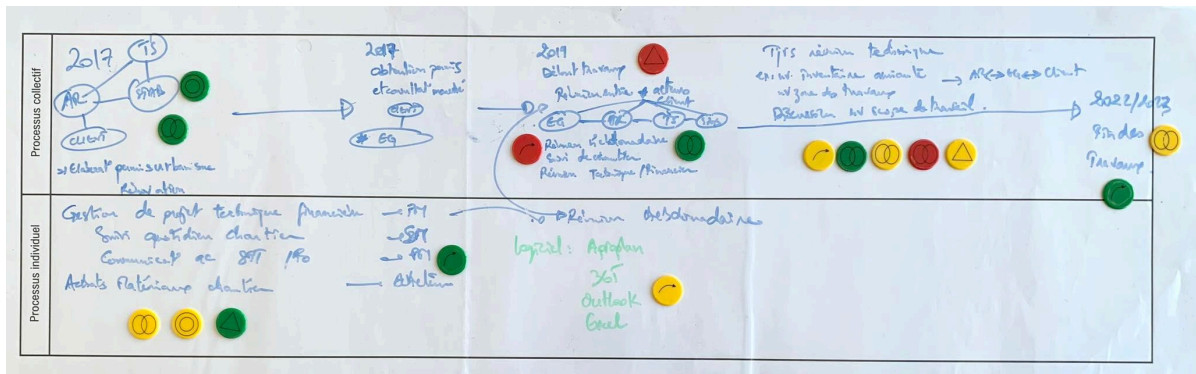 Processus collectif
2017
TS
AR
STAB
CLIENT
Elaborat° permis urbanisme
Rénovation
2017
obtention permis
et consultat° marché
CLIENT
* EG
2019
Début travaux
Réunion entre 4 acteurs
client
EG
AR
TS
Réunion hebdomadaire
Suivi de chantier
Réunion Technique / financier
Tjrs réunion technique
ex: inventaire amiante → AR ↔ EG ↔ Client
zone de travaux
Discussion scope de travail.
2022/2023
Fin des
Travaux
Processus individuel
Gestion de projet technique financier — PM
Suivi quotidien chantier
Communicat° ac
Achats Matériaux chantier — Acheteur
Réunion hebdomadaire
logiciel: Aproplan
365
Outlook
Excel